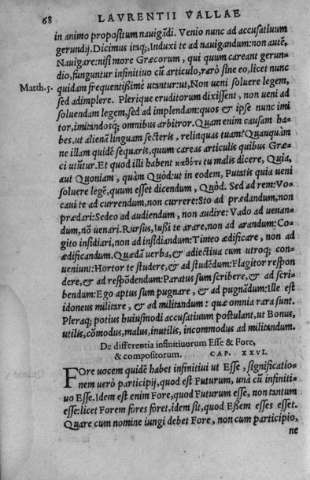 68 LAVRENTII VALLAE
in animo propositum nauigãdi. Venio nunc ad accusatiuum
gerundij. Dicimus inq;, Induxi te ad nauigandum: non autẽ,
Nauigare: nisi more Græcorum, qui quum careant gerun-
dio, funguntur infinitiuo cũ articulo, rarò sine eo, licet nunc
Matth. 5. quidam frequentissimè vtantur: ut, Non ueni soluere legem,
sed adimplere. Plerique eruditorum dixissent, non ueni ad
soluendam legem, sed ad implendam: quos & ipse nunc imi
tor, imitandosq; omnibus arbitror. Quam enim causam ha-
bes, ut alienã linguam secteris, relinquas tuam? Quanquàm
ne illam quidẽ sequaris, quum careas articulis quibus Græ-
ci utũtur. Et quod illi habent καθότι tu malis dicere, Quia,
aut Quoniam, quàm Quòd: ut in eodem, Putatis quia ueni
soluere legẽ, quum esset dicendum, Quòd. Sed ad rem: Vo-
caui te ad currendum, non currere: Sto ad prædandum, non
prædari: Sedeo ad audiendum, non audire: Vado ad uenan-
dum, nõ uenari. Rursus, Iußi te arare, non ad arandum: Co-
gito insidiari, non ad insidiandum: Timeo ædificare, non ad
ædificandum. Quædã uerba, & adiectiua cum utroq; con-
ueniunt: Hortor te studere, & ad studẽdum: Flagitor respon
dere, & ad respõdendum: Paratus sum scribere, & ad scri-
bendum: Ego aptus sum pugnare, & ad pugnãdum: Ille est
idoneus militare, & ad militandum: quæ omnia rara sunt.
Pleraq; potius huiusmodi accusatiuum postulant, ut Bonus,
utilis, cõmodus, malus, inutilis, incommodus ad militandum.
De differentia infinitiuorum Esse & Fore,
& compositorum. CAP. XXVI.
FOre uocem quidẽ habet infinitiui ut Esse, significatio-
nem uerò participij, quod est Futurum, unà cũ infiniti-
uo Esse. Idem est enim Fore, quod Futurum esse, non tantum
esse: licet Forem fores foret, idem sit, quod Essem esses esset.
Quare cum nomine iungi debet Fore, non cum participio,
ne